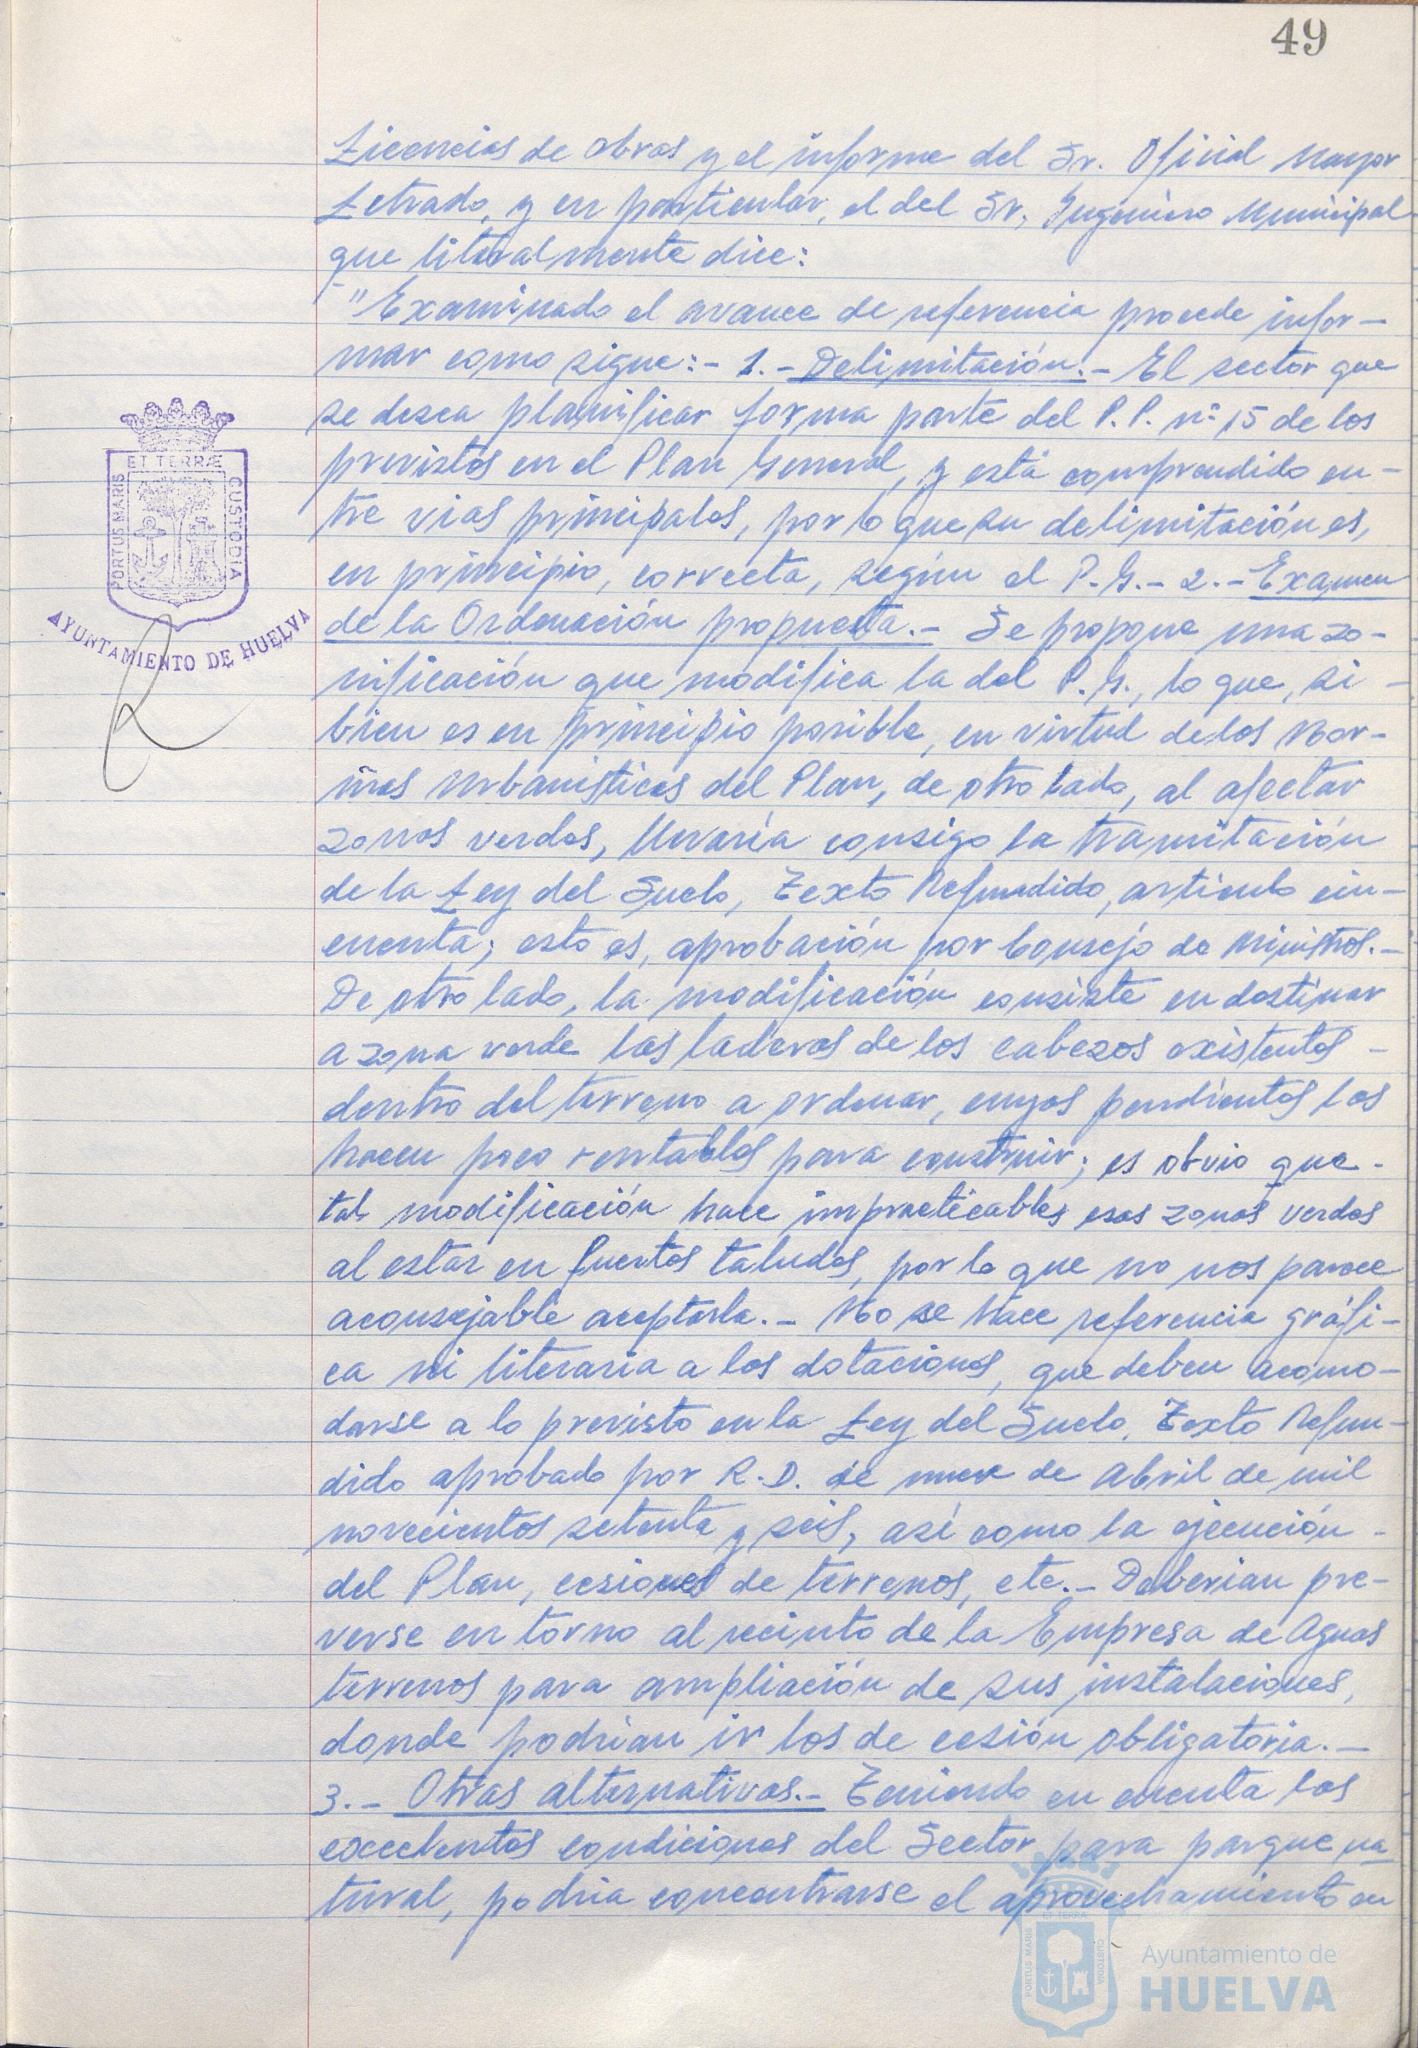 49
Licencias de obras y el informe del Sr. Oficial Mayor
Letrado, y en particular, el del Sr. Ingeniero Municipal
que literalmente dice:
"Examinado el avance de referencia procede infor-
mar como sigue:- 1.- Delimitación.- El sector que
se desea planificar forma parte del P.P. nº 15 de los
previstos en el Plan General, y está comprendido en-
tre vias principales, por lo que su delimitación es,
en principio, correcta, según el P.G.- 2.- Examen
de la Ordenación propuesta.- Se propone una zo-
nificación que modifica la del P.G., lo que, si -
bien es en principio posible, en virtud de las Nor-
mas Urbanisticas del Plan, de otro lado, al afectar
zonas verdes, llevaría consigo la tramitación
de la Ley del Suelo, Texto Refundido, articulo cin-
cuenta; esto es, aprobación por Consejo de Ministros.-
De otro lado, la modificación consiste en destinar
a zona verde las laderas de los cabezos existentes -
dentro del terreno a ordenar, cuyas pendientes las
hacen poco rentables para construir; es obvio que -
tal modificación hace impracticables esas zonas verdes
al estar en fuertes taludes, por lo que no nos parece
aconsejable aceptarla.- No se hace referencia gráfi-
ca ni literaria a las dotaciones, que deben acomo-
darse a lo previsto en la Ley del Suelo, Texto Refun-
dido aprobado por R.D. de nueve de Abril de mil
novecientos setenta y seis, así como la ejecución -
del Plan, cesiones de terrenos, etc.- Deberian pre-
verse en torno al recinto de la Empresa de Aguas
terrenos para ampliación de sus instalaciones,
donde podrian ir los de cesión obligatoria.-
3.- Otras alternativas.- Teniendo en cuenta las
excelentes condiciones del Sector para parque na-
tural, podria concentrarse el aprovechamiento en
ET TERRÆ
PORTUS MARIS
CUSTODIA
AYUNTAMIENTO DE HUELVA
ET TERRÆ
PORTUS MARIS
CUSTODIA
Ayuntamiento de
HUELVA